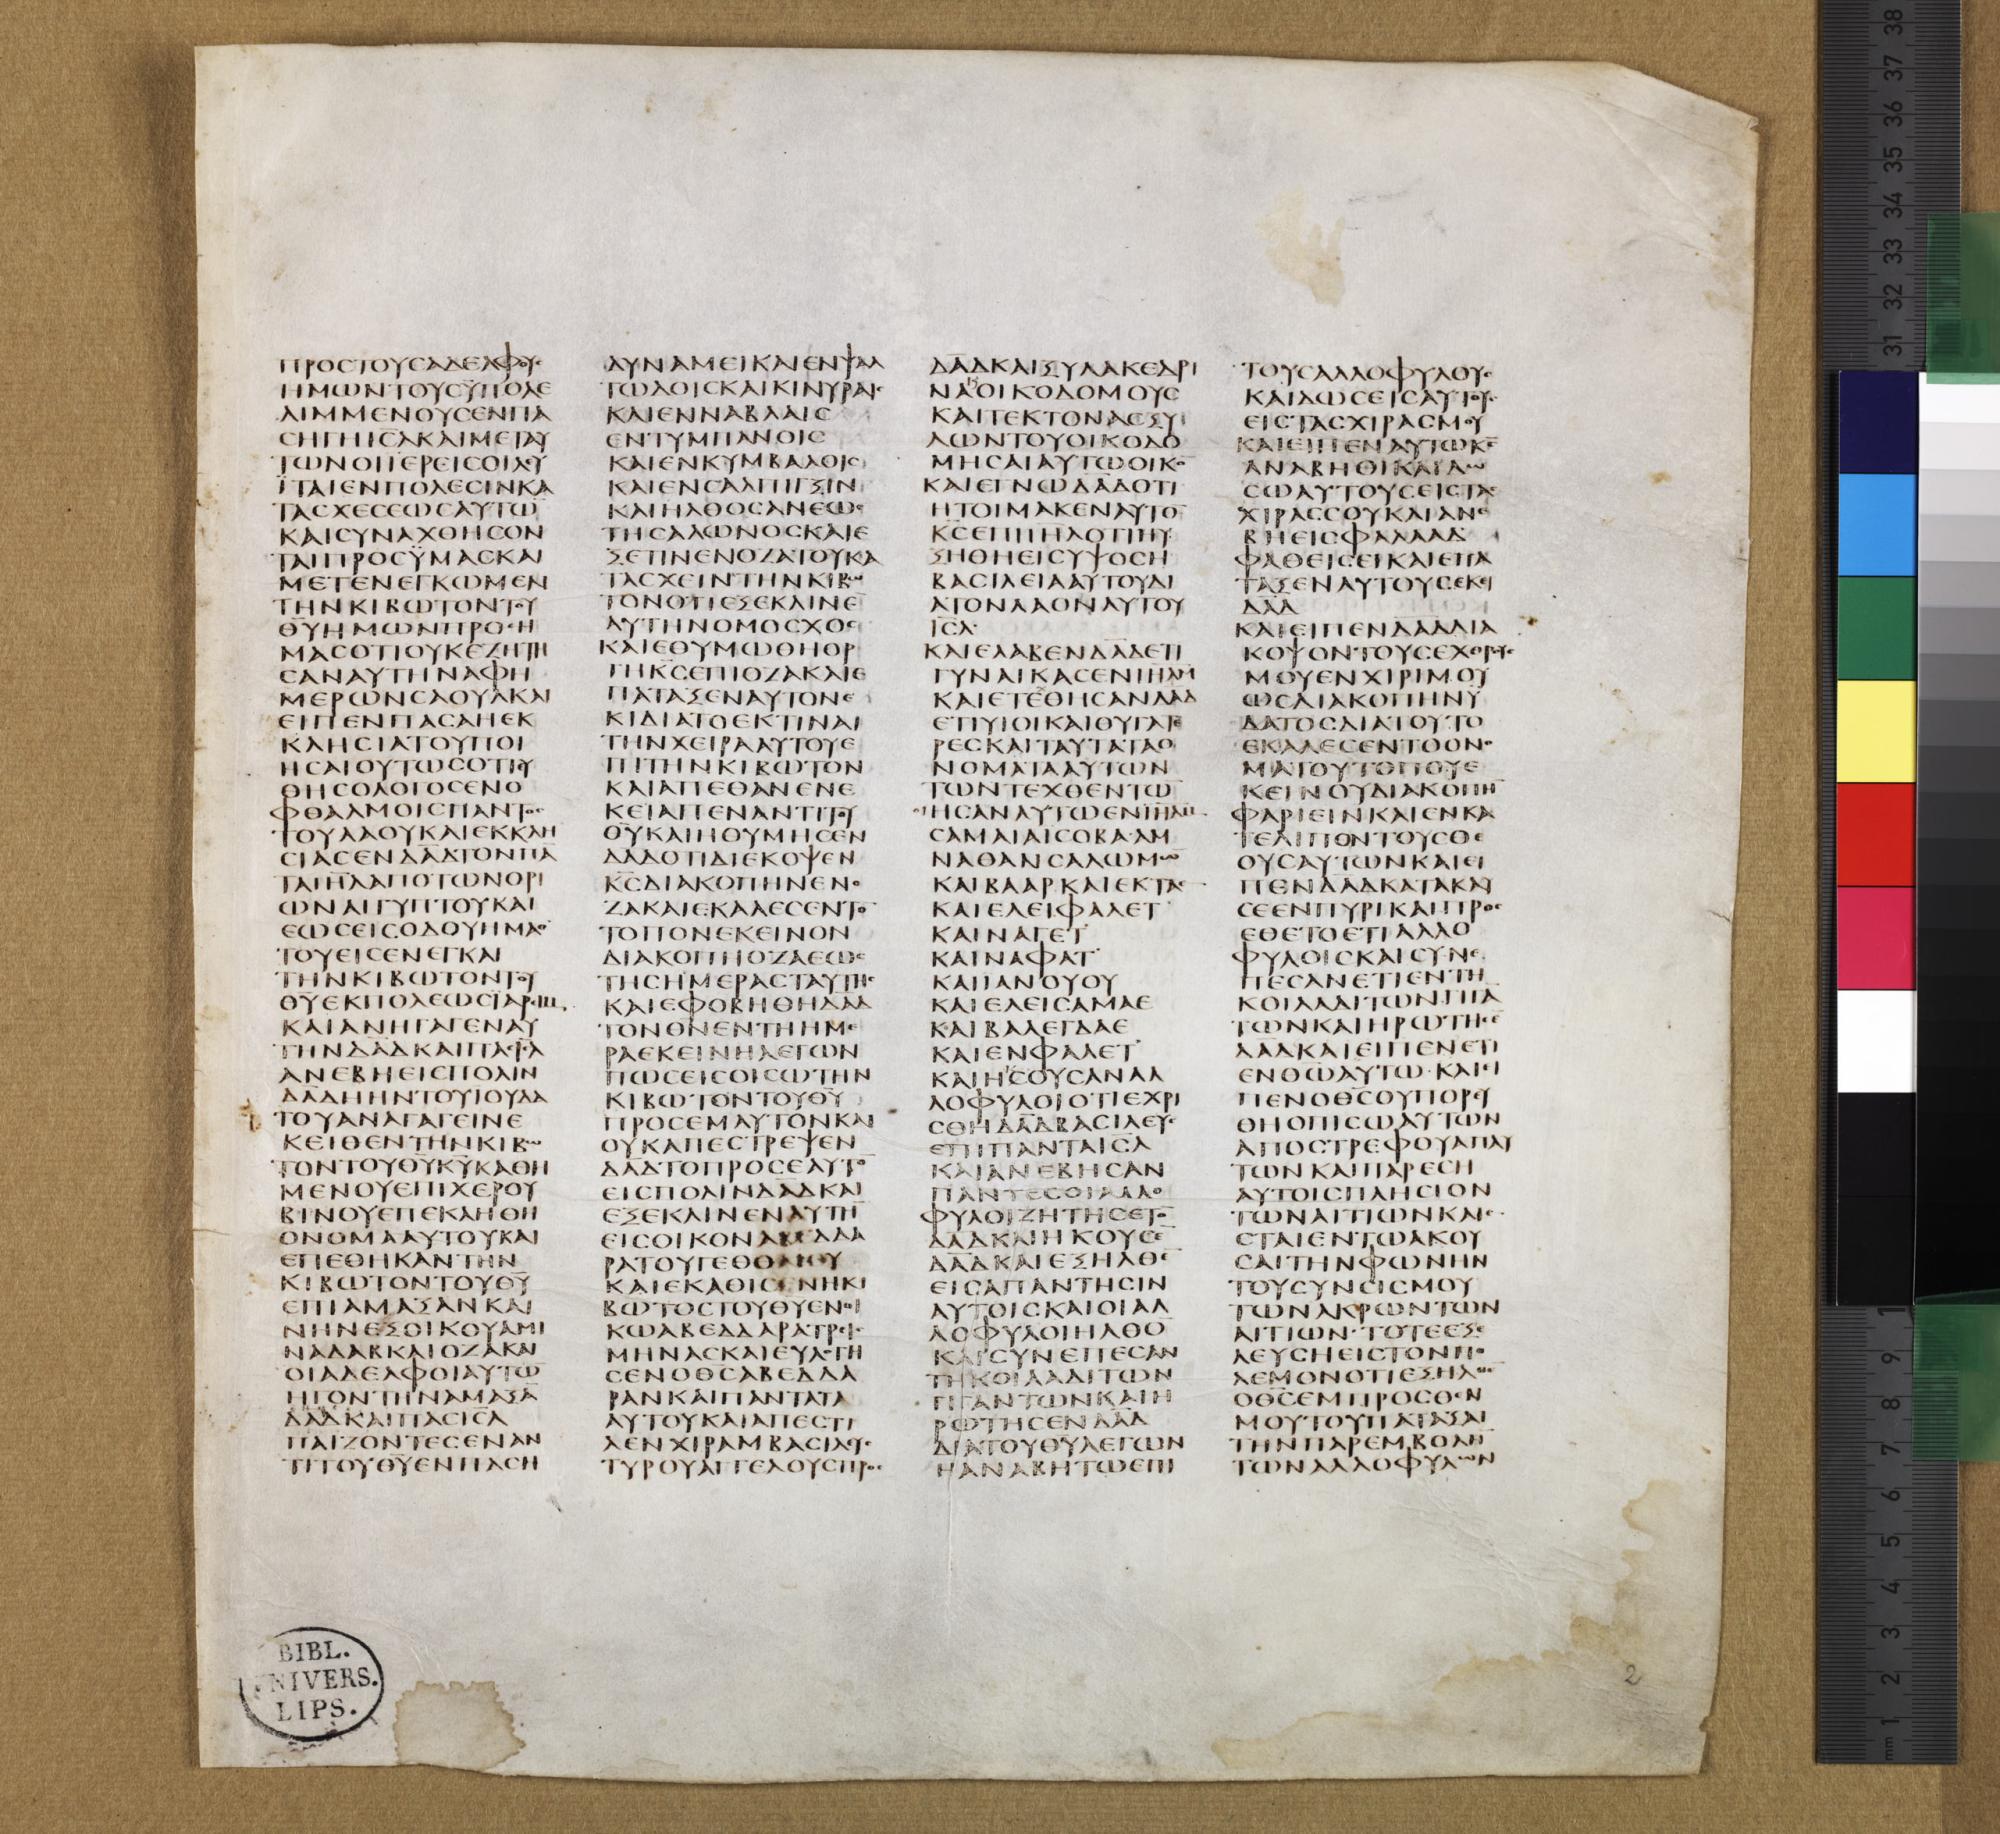 ΠΡΟCΤΟΥCΑΔΕΛΦΟΥC
ΗΜΩΝΤΟΥCΫΠΟΛΕ
ΛΙΜΜΕΝΟΥCΕΝΠΑ
CΗΓΗΙC̅Λ̅ΚΑΙΜΕΤΑΥ
ΤΩΝΟΙΙΕΡΕΙCΟΙΛΕΥ
ΪΤΑΙΕΝΠΟΛΕCΙΝΚΑ
ΤΑCΧΕCΕΩCΑΥΤΩ̅
ΚΑΙCΥΝΑΧΘΗCΟΝ
ΤΑΙΠΡΟCΫΜΑCΚΑΙ
ΜΕΤΕΝΕΓΚΩΜΕΝ
ΤΗΝΚΙΒΩΤΟΝΤΟΥ
Θ̅Υ̅ΗΜΩΝΠΡΟCΗ
ΜΑCΟΤΙΟΥΚΕΖΗΤΗ
CΑΝΑΥΤΗΝΑΦΗ
ΜΕΡΩΝCΑΟΥΛΚΑΙ
ΕΙΠΕΝΠΑCΑΗΕΚ
ΚΛΗCΙΑΤΟΥΠΟΙ
ΗCΑΙΟΥΤΩCΟΤΙΕΥ
ΘΗCΟΛΟΓΟCΕΝΟ
ΦΘΑΛΜΟΙCΠΑΝΤΟC
ΤΟΥΛΑΟΥΚΑΙΕΚΚΛΗ
CΙΑCΕΝΔ̅Α̅Δ̅ΤΟΝΠΑ̅
ΤΑΙΗ̅Λ̅ΑΠΟΤΩΝΟΡΙ
ΩΝΑΙΓΥΠΤΟΥΚΑΙ
ΕΩCΕΙCΟΔΟΥΗΜΑ
ΤΟΥΕΙCΕΝΕΓΚΑΙ
ΤΗΝΚΙΒΩΤΟΝΤΟΥ
Θ̅Υ̅ΕΚΠΟΛΕΩCΪΑΡΙΜ
ΚΑΙΑΝΗΓΑΓΕΝΑΥ
ΤΗΝΔ̅Α̅Δ̅ΚΑΙΠΑCΙΗ̅Λ̅
ΑΝΕΒΗΕΙCΠΟΛΙΝ
Δ̅Α̅Δ̅ΗΗΝΤΟΥΙΟΥΔΑ
ΤΟΥΑΝΑΓΑΓΕΙΝΕ
ΚΕΙΘΕΝΤΗΝΚΙΒΩ
ΤΟΝΤΟΥΘ̅Υ̅Κ̅Υ̅ΚΑΘΗ
ΜΕΝΟΥΕΠΙΧΕΡΟΥ
ΒΙΝΟΥΕΠΕΚΛΗΘΗ
ΟΝΟΜΑΑΥΤΟΥΚΑΙ
ΕΠΕΘΗΚΑΝΤΗΝ
ΚΙΒΩΤΟΝΤΟΥΘ̅Υ̅
ΕΠΙΑΜΑΞΑΝΚΑΙ
ΝΗΝΕΞΟΙΚΟΥΑΜΙ
ΝΑΔΑΒΚΑΙΟΖΑΚΑΙ
ΟΙΑΔΕΛΦΟΙΑΥΤΩ̅
ΗΓΟΝΤΗΝΑΜΑΞΑ̅
Δ̅Α̅Δ̅ΚΑΙΠΑCΙC̅Λ̅
ΠΑΙΖΟΝΤΕCΕΝΑΝ
ΤΙΤΟΥΘ̅Υ̅ΕΝΠΑCΗ
ΔΥΝΑΜΕΙΚΑΙΕΝΨΑΛ
ΤΩΔΟΙCΚΑΙΚΙΝΥΡΑΙC
ΚΑΙΕΝΝΑΒΛΑΙC
ΕΝΤΥΜΠΑΝΟΙC
ΚΑΙΕΝΚΥΜΒΑΛΟΙC
ΚΑΙΕΝCΑΛΠΙΓΞΙΝ
ΚΑΙΗΛΘΟCΑΝΕΩC
ΤΗCΑΛΩΝΟCΚΑΙΕ
ΞΕΤΙΝΕΝΟΖΑΤΟΥΚΑ
ΤΑCΧΕΙΝΤΗΝΚΙΒΩ
ΤΟΝΟΤΙΕΞΕΚΛΙΝΕ
ΑΥΤΗΝΟΜΟCΧΟC
ΚΑΙΕΘΥΜΩΘΗΟΡ
ΓΗΚ̅C̅ΕΠΙΟΖΑΚΑΙΕ
ΠΑΤΑΞΕΝΑΥΤΟΝΕ
ΚΙΔΙΑΤΟΕΚΤΙΝΑΙ
ΤΗΝΧΕΙΡΑΑΥΤΟΥΕ
ΠΙΤΗΝΚΙΒΩΤΟΝ
ΚΑΙΑΠΕΘΑΝΕΝΕ
ΚΕΙΑΠΕΝΑΝΤΙΤΟΥ
Θ̅Υ̅ΚΑΙΗΘΥΜΗCΕΝ
Δ̅Α̅Δ̅ΟΤΙΔΙΕΚΟΨΕΝ
Κ̅C̅ΔΙΑΚΟΠΗΝΕΝΟ
ΖΑΚΑΙΕΚΑΛΕCΕΝΤΟ̅
ΤΟΠΟΝΕΚΕΙΝΟΝ
ΔΙΑΚΟΠΗΟΖΑΕΩC
ΤΗCΗΜΕΡΑCΤΑΥΤΗC
ΚΑΙΕΦΟΒΗΘΗΔ̅Α̅Δ̅
ΤΟΝΘ̅Ν̅ΕΝΤΗΗΜΕ
ΡΑΕΚΕΙΝΗΛΕΓΩΝ
ΠΩCΕΙCΟΙCΩΤΗΝ
ΚΙΒΩΤΟΝΤΟΥΘ̅Υ̅
ΠΡΟCΕΜΑΥΤΟΝΚΑΙ
ΟΥΚΑΠΕCΤΡΕΨΕΝ
Δ̅Α̅Δ̅ΤΟΠΡΟCΕΑΥΤΟ̅
ΕΙCΠΟΛΙΝΔ̅Α̅Δ̅ΚΑΙ
ΕΞΕΚΛΙΝΕΝΑΥΤΗ̅
ΕΙCΟΙΚΟΝ
ΡΑΤΟΥΓΕΘ
ΚΑΙΕΚΑΘΙCΕΝΗΚΙ
ΒΩΤΟCΤΟΥΘ̅Υ̅ΕΝΟΙ
ΚΩΑΒΕΔΔΑΡΑΤΡΙC
ΜΗΝΑCΚΑΙΕΥΛΟΓΗ
CΕΝΟΘ̅C̅ΑΒΕΔΔΑ
ΡΑΝΚΑΙΠΑΝΤΑΤΑ
ΑΥΤΟΥΚΑΙΑΠΕCΤΙ
ΛΕΝΧΙΡΑΜΒΑCΙΛΕΥC
ΤΥΡΟΥΑΓΓΕΛΟΥCΠΡΟC
Δ̅Α̅Δ̅ΚΑΙΞΥΛΑΚΕΔΡΙ
ΝΑΚΟΙΚΟΔΟΜΟΥC
ΚΑΙΤΕΚΤΟΝΑCΞΥ
ΛΩΝΤΟΥΟΙΚΟΔΟ
ΜΗCΑΙΑΥΤΩΟΙΚΟ̅
ΚΑΙΕΓΝΩΔ̅Α̅Δ̅ΟΤΙ
ΗΤΟΙΜΑΚΕΝΑΥΤΟ̅
Κ̅C̅ΕΠΙΙΗ̅Λ̅ΟΤΙΗΥ
ΞΗΘΗΕΙCΥΨΟCΗ
ΒΑCΙΛΕΙΑΑΥΤΟΥΔΙ
ΑΤΟΝΛΑΟΝΑΥΤΟΥ
ΙC̅Λ̅
ΚΑΙΕΛΑΒΕΝΔ̅Α̅Δ̅ΕΤΙ
ΓΥΝΑΙΚΑCΕΝΙΗ̅Λ̅Μ̅
ΚΑΙΕΤΕΘΗCΑΝΔ̅Α̅Δ̅
ΕΤΙΥΙΟΙΚΑΙΘΥΓΑΤΕ
ΡΕCΚΑΙΤΑΥΤΑΤΑΟ
ΝΟΜΑΤΑΑΥΤΩΝ
ΤΩΝΤΕΧΘΕΝΤΩ̅
ΟΙΗCΑΝΑΥΤΩΕΝΙΗ̅Λ̅Μ̅
CΑΜΑΙΑΙCΟΒΑΑΜ
ΝΑΘΑΝCΑΛΩΜΩ̅
ΚΑΙΒΑΑΡΚΑΙΕΚΤΑΕ
ΚΑΙΕΛΕΙΦΑΛΕΤ
ΚΑΙΝΑΓΕΤ
ΚΑΙΝΑΦΑΤ
ΚΑΙΙΑΝΟΥΟΥ
ΚΑΙΕΛΕΙCΑΜΑΕ
ΚΑΙΒΑΛΕΓΔΑΕ
ΚΑΙΕΝΦΑΛΕΤ
ΚΑΙΗΚΟΥCΑΝΑΛ
ΛΟΦΥΛΟΙΟΤΙΕΧΡΙ
CΘΗΔ̅Α̅Δ̅ΒΑCΙΛΕΥC
ΕΠΙΠΑΝΤΑΙC̅Λ̅
ΚΑΙΑΝΕΒΗCΑΝ
ΠΑΝΤΕCΟΙΑΛΛΟ
ΦΥΛΟΙΖΗΤΗCΕΤΟ̅
Δ̅Α̅Δ̅ΚΑΙΗΚΟΥCΕ̅
Δ̅Α̅Δ̅ΚΑΙΕΞΗΛΘΕ̅
ΕΙCΑΠΑΝΤΗCΙΝ
ΑΥΤΟΙCΚΑΙΟΙΑΛ
ΛΟΦΥΛΟΙΗΛΘΟ̅
ΚΑΙCΥΝΕΠΕCΑΝ
ΤΗΚΟΙΛΑΔΙΤΩΝ
ΓΙΓΑΝΤΩΝΚΑΙΗ
ΡΩΤΗCΕΝΔ̅Α̅Δ̅
ΔΙΑΤΟΥΘ̅Υ̅ΛΕΓΩΝ
ΗΑΝΑΒΗΤΩΕΠΙ
ΤΟΥCΑΛΛΟΦΥΛΟΥC
ΚΑΙΔΩCΕΙCΑΥΤΟΥC
ΕΙCΤΑCΧΙΡΑCΜΟΥ
ΚΑΙΕΙΠΕΝΑΥΤΩΚ̅C̅
ΑΝΑΒΗΘΙΚΑΙΔΩ
CΩΑΥΤΟΥCΕΙCΤΑC
ΧΙΡΑCCΟΥΚΑΙΑΝΕ
ΒΗΕΙCΦΑΛΑΑΔ
ΦΑΘΕΙCΕΙΚΑΙΕΠΑ
ΤΑΞΕΝΑΥΤΟΥCΕΚΕΙ
Δ̅Α̅Δ̅
ΚΑΙΕΙΠΕΝΔ̅Α̅Δ̅ΔΙΑ
ΚΟΨΟΝΤΟΥCΕΧΘΡΟΥC
ΜΟΥΕΝΧΙΡΙΜΟΥ
ΩCΔΙΑΚΟΠΗΝΫ
ΔΑΤΟCΔΙΑΤΟΥΤΟ
ΕΚΑΛΕCΕΝΤΟΟΝΟ
ΜΑΤΟΥΤΟΠΟΥΕ
ΚΕΙΝΟΥΔΙΑΚΟΠΗ̅
ΦΑΡΙΕΙΝΚΑΙΕΝΚΑ
ΤΕΛΙΠΟΝΤΟΥCΘΕ
ΟΥCΑΥΤΩΝΚΑΙΕΙ
ΠΕΝΔ̅Α̅Δ̅ΚΑΤΑΚΑΥ
CΕΕΝΠΥΡΙΚΑΙΠΡΟC
ΕΘΕΤΟΕΤΙΑΛΛΟ
ΦΥΛΟΙCΚΑΙCΥΝΕ
ΠΕCΑΝΕΤΙΕΝΤΗ
ΚΟΙΛΑΔΙΤΩΝΓΙΓΑ̅
ΤΩΝΚΑΙΗΡΩΤΗCΕ̅
Δ̅Α̅Δ̅ΚΑΙΕΙΠΕΝΕΤΙ
ΕΝΘ̅Ω̅ΑΥΤΩΚΑΙΕΙ
ΠΕΝΟΘ̅C̅ΟΥΠΟΡΕΥ
ΘΗΟΠΙCΩΑΥΤΩΝ
ΑΠΟCΤΡΕΦΟΥΑΠΑΥ
ΤΩΝΚΑΙΠΑΡΕCΗ
ΑΥΤΟΙCΠΛΗCΙΟΝ
ΤΩΝΑΙΤΙΩΝΚΑΙΕ
CΤΑΙΕΝΤΩΑΚΟΥ
CΑΙΤΗΝΦΩΝΗΝ
ΤΟΥCΥΝCΙCΜΟΥ
ΤΩΝΑΚΡΩΝΤΩΝ
ΑΙΤΙΩΝ·ΤΟΤΕΕΞΕ
ΛΕΥCΗΕΙCΤΟΝΠΟ
ΛΕΜΟΝΟΤΙΕΞΗΛΘΕ̅
ΟΘ̅C̅ΕΜΠΡΟCΘΕΝ
ΜΟΥΤΟΥΠΑΤΑΞΑΙ
ΤΗΝΠΑΡΕΜΒΟΛΗ̅
ΤΩΝΑΛΛΟΦΥΛΩΝ
BIBL.
UNIVERS.
LIPS.
2